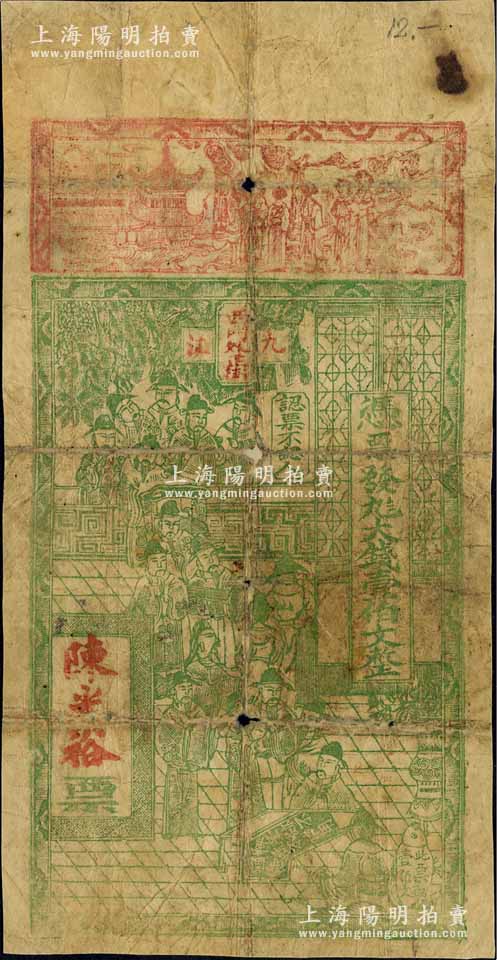 上海陽明拍賣
www.yangmingauction.com
12.—
九江
西門外正街
憑票發九大錢壹伯文整
認票不
上海陽明拍賣
www.yangmingauction.com
陳
裕
票
此票
上海陽明拍賣
www.yangmingauction.com